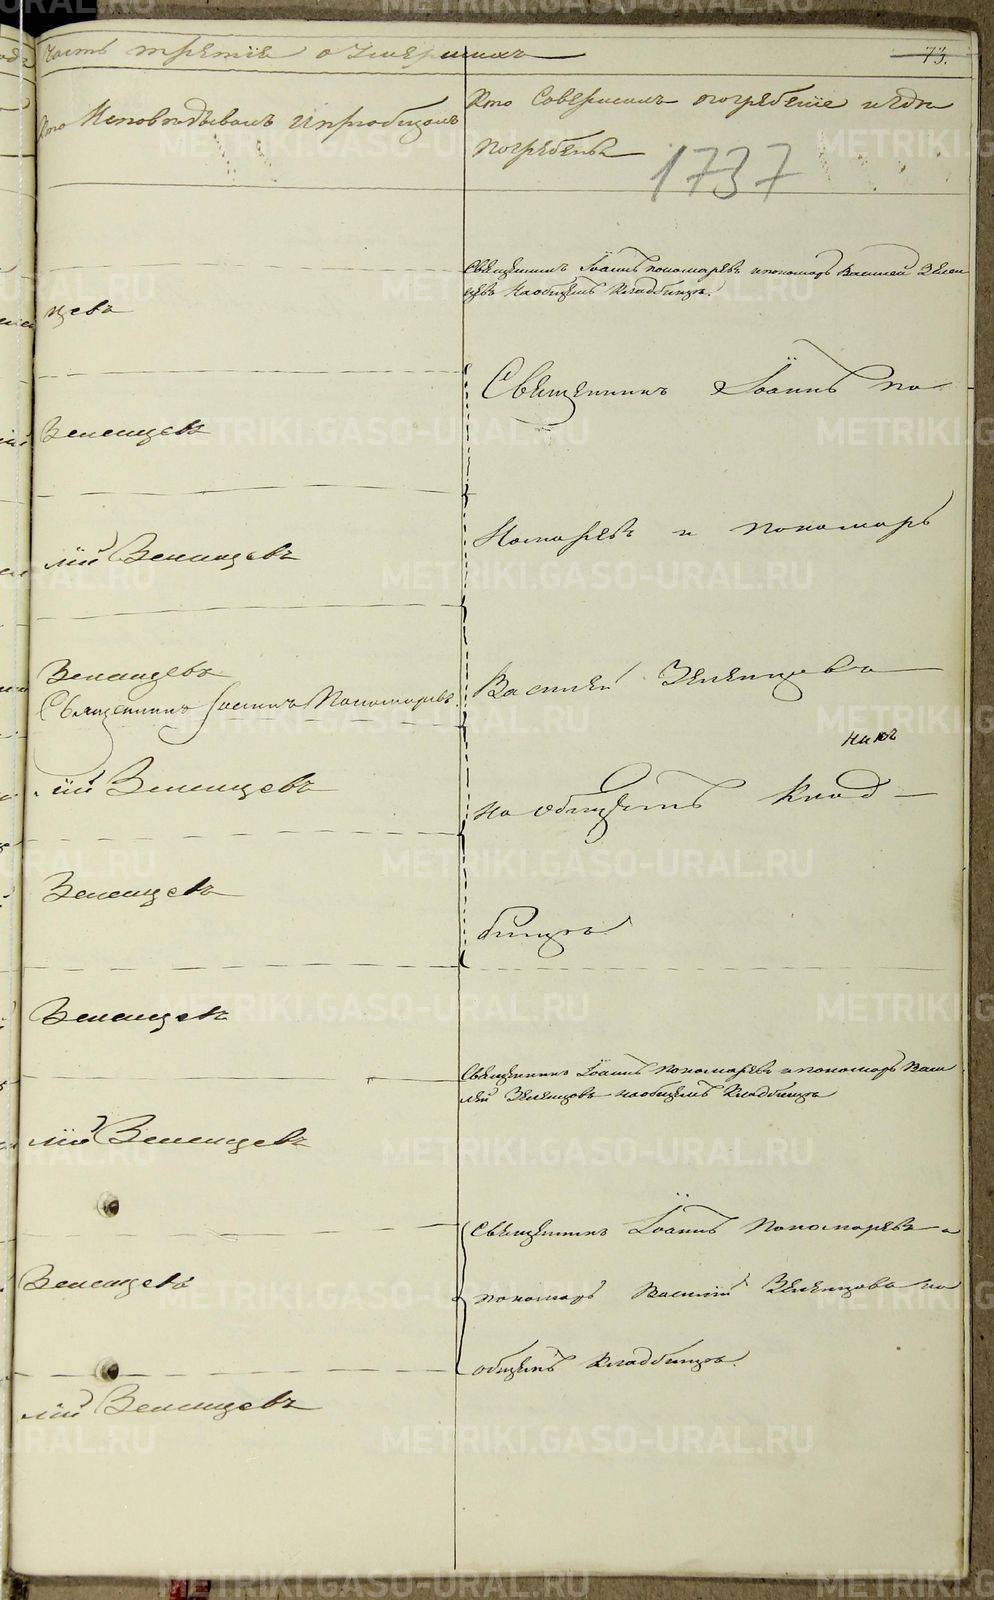 Часть третіе о Умершихъ
73.
Кто Исповѣдывалъ и приобщалъ
Кто Совершалъ погребеніе и гдѣ
погребены
1737
Священникъ Іоаннъ пономаревъ и пономарь Василей Зелен
цевъ На общемъ Кладбищѣ.
цевъ
Священникъ Іоаннъ по
Зеленцевъ
номаревъ и пономарь
лій Зеленцевъ
Зеленцевъ
Священникъ Іоаннъ Пономаревъ.
Василей Зеленцовъ
на общемъ Клад
лій Зеленцевъ
Зеленцевъ
бищѣ
Зеленцевъ
Священникъ Іоаннъ Пономаревъ и пономарь Васи
лей Зеленцовъ на общемъ Кладбищѣ
лій Зеленцевъ
Священникъ Іоаннъ Пономаревъ и
Зеленцевъ
пономарь Василій Зеленцовъ на
общемъ Кладбищѣ.
лій Зеленцевъ
METRIKI.GASO-URAL.RU